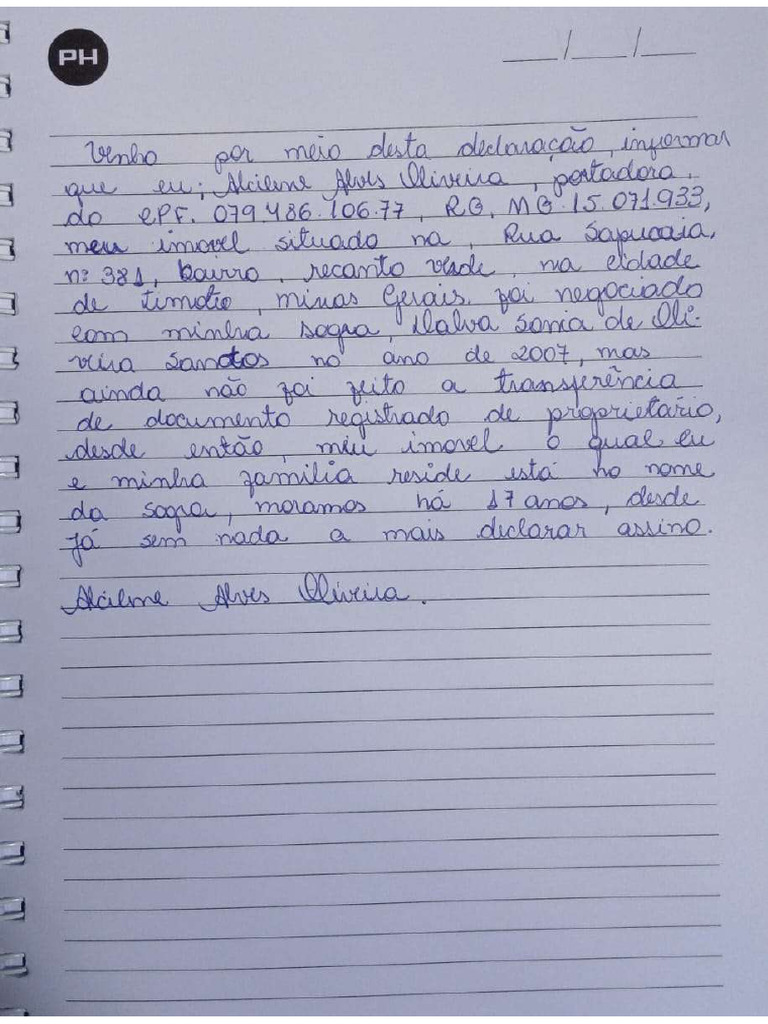 PH
__/__/__
Venho por meio desta declaração, informar
que eu; Alcilene Alves Oliveira, portadora,
do CPF. 079.486.106.77, RG. MG.15.071.933,
meu imovel situado na, Rua Sapucaia,
nº 381, bairro, recanto verde, na cidade
de timoteo, minas Gerais, foi negociado
com minha sogra, Dalva Sonia de Oli-
veira Santos no ano de 2007, mas
ainda não foi feito a transferência
de documento registrado de proprietario,
desde então, meu imovel o qual eu
e minha familia reside está no nome
da sogra, moramos há 17 anos, desde
já sem nada a mais declarar assino.
Alcilene Alves Oliveira.